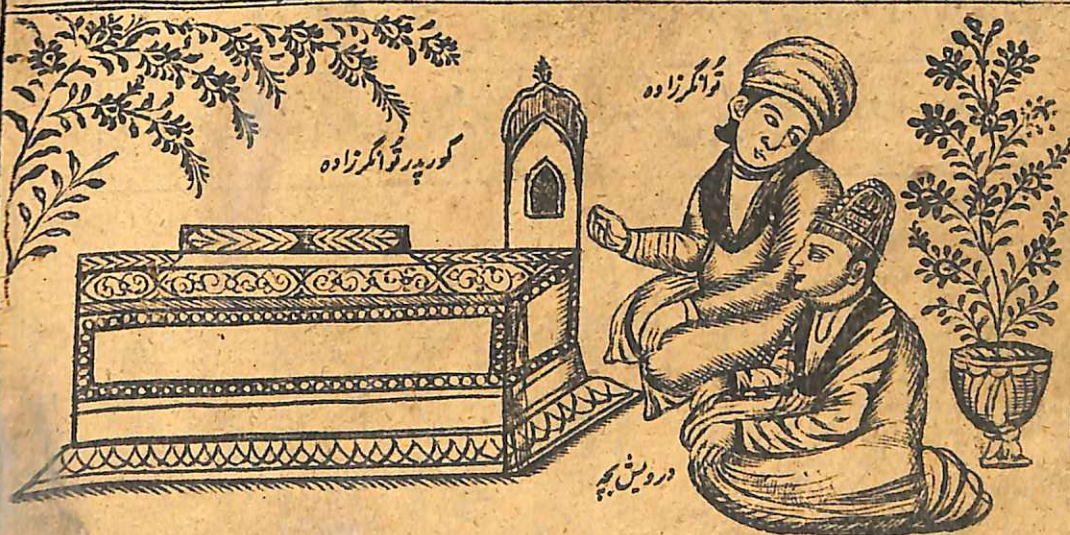 تُوانگرزاده
گور پدر تُوانگرزاده
درویش بچه